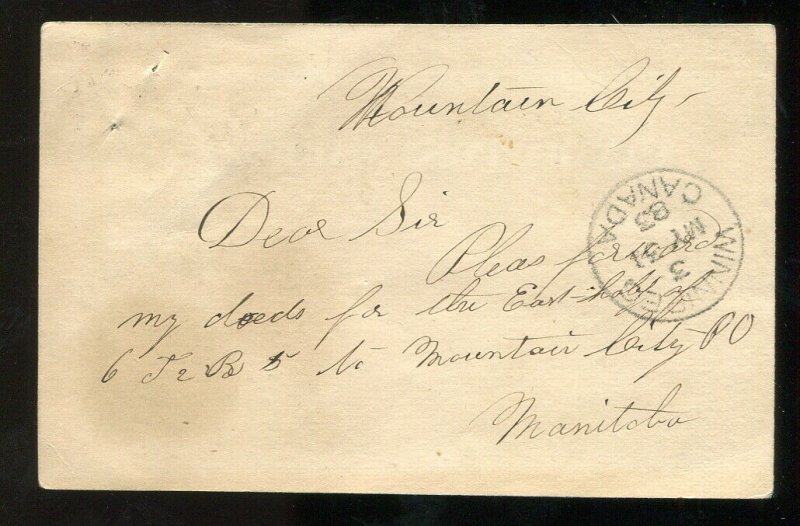 Mountain City
Dear Sir
Pleas forward
my deeds for the East half of
6 T 2 R 5 to Mountain City PO
Manitoba
WINNIPEG
CANADA
3
MY 31
83